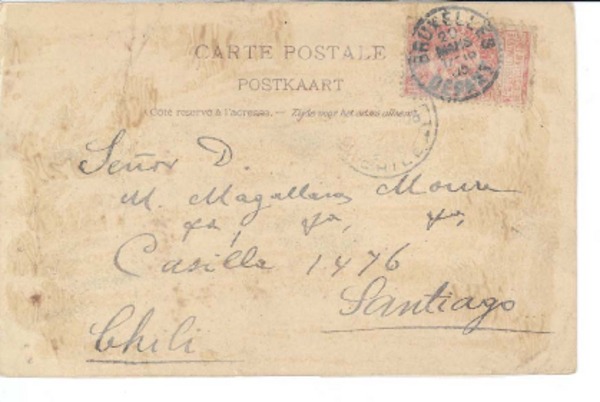 CARTE POSTALE
POSTKAART
Côté réservé à l'adresse. — Zijde voor het adres alleen.
BRUXELLES
DEPART
CHILE
Señor D.
M. Magallanes Moure
Casilla 1476
Santiago
Chili